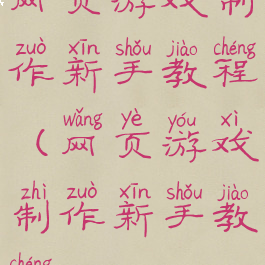 网页游戏制
zuò xīn shǒu jiào chéng
作新手教程
wǎng yè yóu xì
（网页游戏
zhì zuò xīn shǒu jiào
制作新手教
chéng